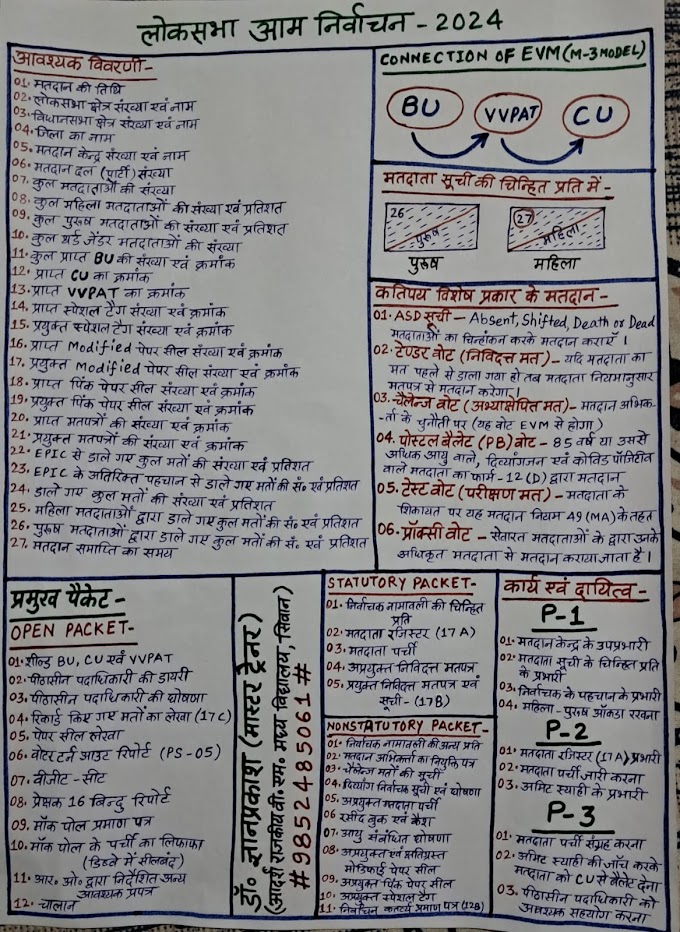 लोकसभा आम निर्वाचन - 2024
आवश्यक विवरणी-
01. मतदान की तिथि
02. लोकसभा क्षेत्र संख्या एवं नाम
03. विधानसभा क्षेत्र संख्या एवं नाम
04. जिला का नाम
05. मतदान केन्द्र संख्या एवं नाम
06. मतदान दल (पार्टी) संख्या
07. कुल मतदाताओं की संख्या
08. कुल महिला मतदाताओं की संख्या एवं प्रतिशत
09. कुल पुरुष मतदाताओं की संख्या एवं प्रतिशत
10. कुल थर्ड जेंडर मतदाताओं की संख्या
11. कुल प्राप्त BU की संख्या एवं क्रमांक
12. प्राप्त CU का क्रमांक
13. प्राप्त VVPAT का क्रमांक
14. प्राप्त स्पेशल टैग संख्या एवं क्रमांक
15. प्रयुक्त स्पेशल टैग संख्या एवं क्रमांक
16. प्राप्त Modified पेपर सील संख्या एवं क्रमांक
17. प्रयुक्त Modified पेपर सील संख्या एवं क्रमांक
18. प्राप्त पिंक पेपर सील संख्या एवं क्रमांक
19. प्रयुक्त पिंक पेपर सील संख्या एवं क्रमांक
20. प्राप्त मतपत्रों की संख्या एवं क्रमांक
21. प्रयुक्त मतपत्रों की संख्या एवं क्रमांक
22. EPIC से डाले गए कुल मतों की संख्या एवं प्रतिशत
23. EPIC के अतिरिक्त पहचान से डाले गए मतों की सं० एवं प्रतिशत
24. डाले गए कुल मतों की संख्या एवं प्रतिशत
25. महिला मतदाताओं द्वारा डाले गए कुल मतों की सं० एवं प्रतिशत
26. पुरुष मतदाताओं द्वारा डाले गए कुल मतों की सं० एवं प्रतिशत
27. मतदान समाप्ति का समय
CONNECTION OF EVM (M-3 MODEL)
BU VVPAT CU
मतदाता सूची की चिन्हित प्रति में -
26 पुरुष 27 महिला
पुरुष महिला
कतिपय विशेष प्रकार के मतदान -
01. ASD सूची - Absent, Shifted, Death or Dead
मतदाताओं का चिन्हांकन करके मतदान कराएं।
02. टेण्डर वोट (निविदत्त मत) - यदि मतदाता का
मत पहले से डाला गया हो तब मतदाता नियमानुसार
मतपत्र से मतदान करेगा।
03. चैलेन्ज वोट (अभ्याक्षेपित मत) - मतदान अभिक-
र्ता के चुनौती पर (यह वोट EVM से होगा)
04. पोस्टल बैलेट (PB) वोट - 85 वर्ष या उससे
अधिक आयु वाले, दिव्यांगजन एवं कोविड पॉजिटिव
वाले मतदाता का फार्म-12 (D) द्वारा मतदान
05. टेस्ट वोट (परीक्षण मत) - मतदाता के
शिकायत पर यह मतदान नियम 49 (MA) के तहत
06. प्रॉक्सी वोट - सेवारत मतदाताओं के द्वारा उनके
अधिकृत मतदाता से मतदान कराया जाता है।
प्रमुख पैकेट -
OPEN PACKET-
01. शील्ड BU, CU एवं VVPAT
02. पीठासीन पदाधिकारी की डायरी
03. पीठासीन पदाधिकारी की घोषणा
04. रिकार्ड किए गए मतों का लेखा (17C)
05. पेपर सील लेखा
06. वोटर टर्न आउट रिपोर्ट (PS-05)
07. वीजीट - सीट
08. प्रेक्षक 16 बिन्दु रिपोर्ट
09. मॉक पोल प्रमाण पत्र
10. मॉक पोल के पर्ची का लिफाफा
(डिब्बे में सीलबंद)
11. आर० ओ० द्वारा निर्देशित अन्य
आवश्यक प्रपत्र
12. चालान
डॉ० ज्ञानप्रकाश (मास्टर ट्रेनर)
(आदर्श राजकीय वी० एम० मध्य विद्यालय, सिवान)
#9852485061#
STATUTORY PACKET-
01. निर्वाचक नामावली की चिन्हित
प्रति
02. मतदाता रजिस्टर (17A)
03. मतदाता पर्ची
04. अप्रयुक्त निविदत्त मतपत्र
05. प्रयुक्त निविदत्त मतपत्र एवं
सूची - (17B)
NONSTATUTORY PACKET-
01. निर्वाचक नामावली की अन्य प्रति
02. मतदान अभिकर्ता का नियुक्ति पत्र
03. चैलेन्ज मतों की सूची
04. दिव्यांग निर्वाचक सूची एवं घोषणा
05. अप्रयुक्त मतदाता पर्ची
06. रसीद बुक एवं कैश
07. आयु संबंधित घोषणा
08. अप्रयुक्त एवं क्षतिग्रस्त
मोडिफाई पेपर सील
09. अप्रयुक्त पिंक पेपर सील
10. अप्रयुक्त स्पेशल टैग
11. निर्वाचन कर्तव्य प्रमाण पत्र (12B)
कार्य एवं दायित्व -
P-1
01. मतदान केन्द्र के उपप्रभारी
02. मतदाता सूची के चिन्हित प्रति
के प्रभारी
03. निर्वाचक के पहचान के प्रभारी
04. महिला-पुरुष आँकडा रखना
P-2
01. मतदाता रजिस्टर (17A) प्रभारी
02. मतदाता पर्ची जारी करना
03. अमिट स्याही के प्रभारी
P-3
01. मतदाता पर्ची संग्रह करना
02. अमिट स्याही की जाँच करके
मतदाता को CU से बैलेट देना
03. पीठासीन पदाधिकारी को
आवश्यक सहयोग करना